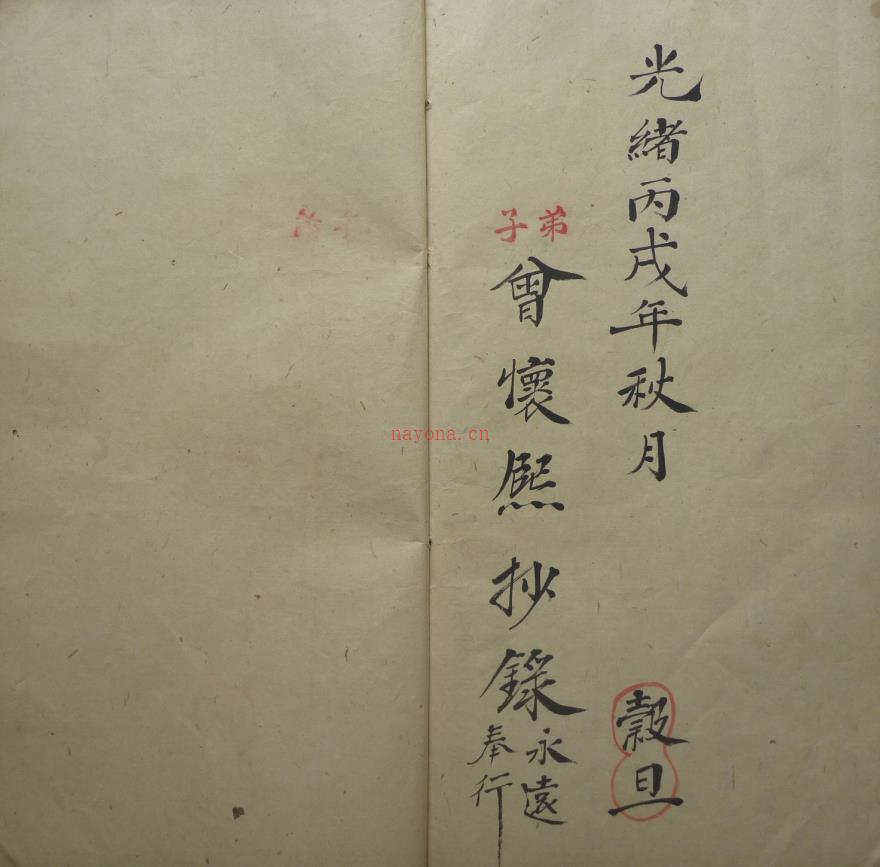 光緒丙戌年秋月
穀旦
弟子
曾懷熙抄錄
永遠
奉行
nayona.cn